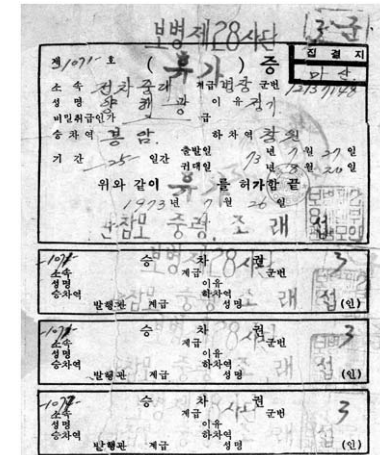 보병제28사단
3군
제1071호 (휴가) 증
집결지
마산
소속 전차중대 계급 병장 군번 12137148
성명 광 이유 정기
비밀취급인가 급
승차역 봉암 하차역 잠실
기간 25 일간 출발일 73년 7월 27일
귀대일 년 8월 20일
위와 같이 휴가를 허가함 끝
1973년 7월 26일
참모 중령 조래섭
1071 승차권 3
소속 계급 군번
성명 이유
승차역 하차역
발행관 계급 성명 (인)
1071 승차권 3
소속 계급 군번
성명 이유
승차역 하차역
발행관 계급 성명 (인)
1071 승차권 3
소속 계급 군번
성명 이유
승차역 하차역
발행관 계급 성명 (인)